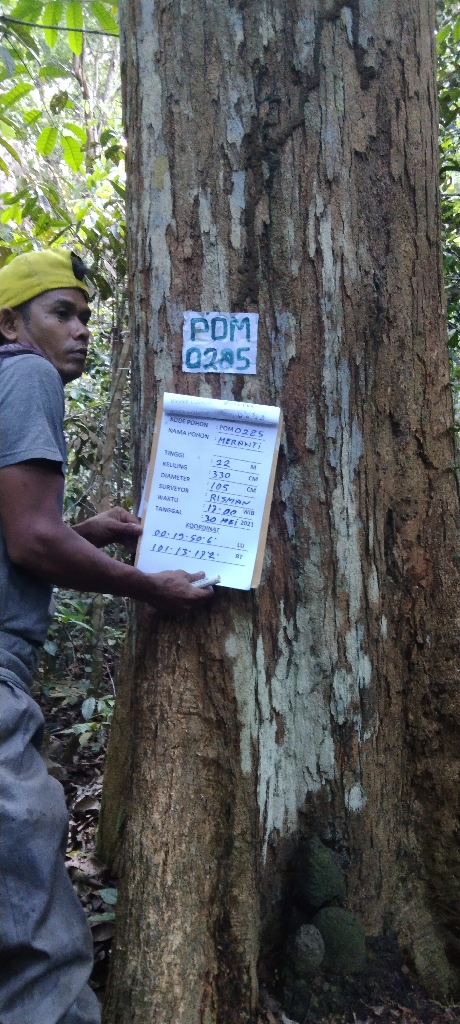 POM
0285
KODE POHON : POM 0285
NAMA POHON : MERANTI
TINGGI : 22 M
KELILING : 330 CM
DIAMETER : 105 CM
SURVEYOR : RISMAN
WAKTU : 17:00 WIB
TANGGAL : 30 MEI 2021
KOORDINAT
00·19·50·6· LU
101·13·17·2· BT